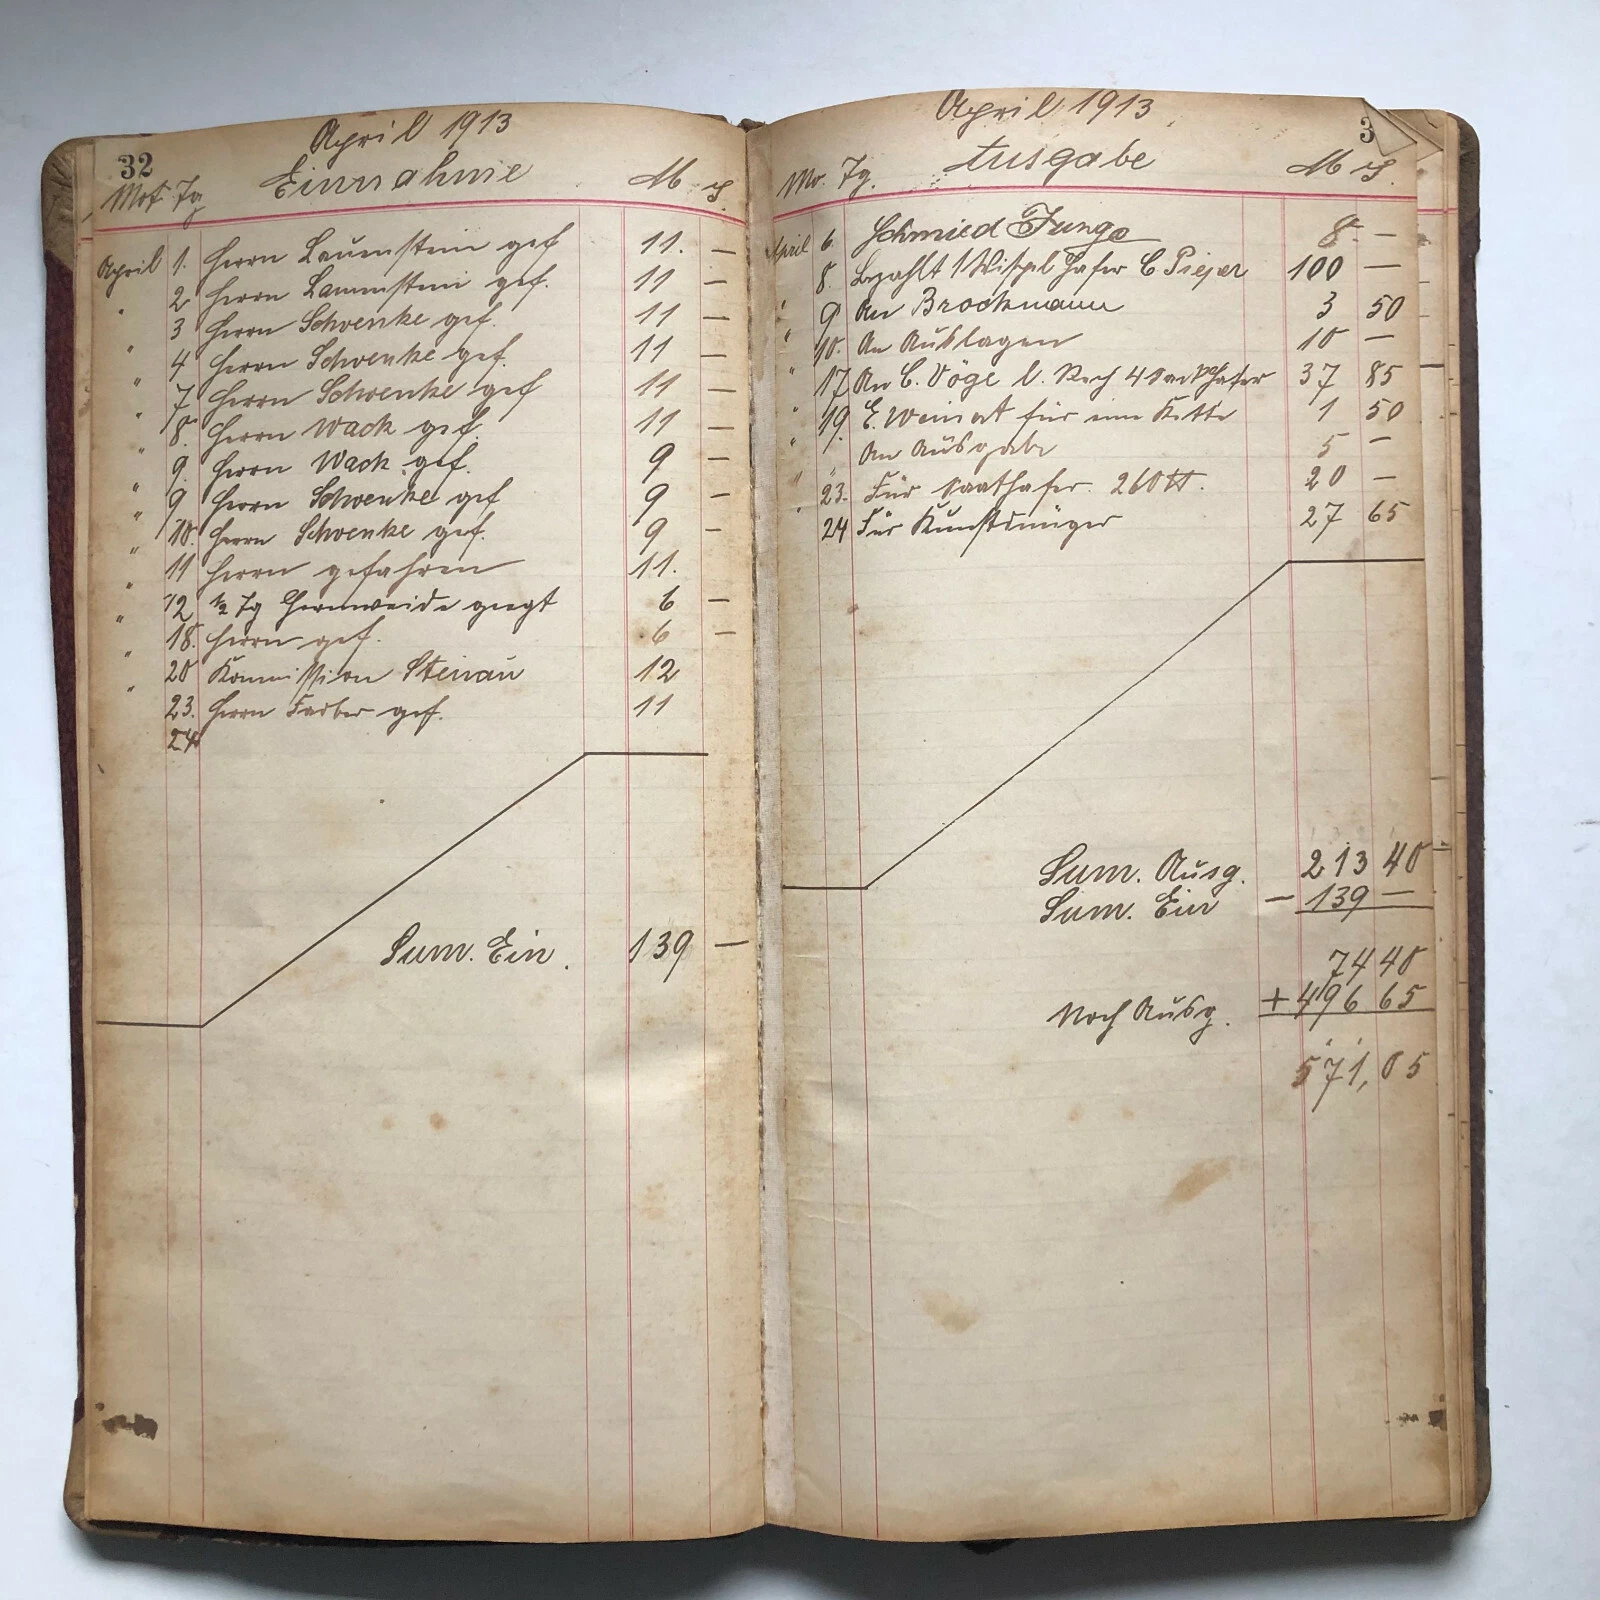 32
April 1913
Mot Tg Einnahme M ₰.
April 1. Herrn Lauenstein gef 11. —
" 2 Herrn Lauenstein gef. 11 —
3 Herrn Schwenke gef. 11 —
" 4 Herrn Schwenke gef. 11 —
" 7 Herrn Schwenke gef 11 —
" 8. Herrn Wack gef. 11 —
" 9. Herrn Wack gef. 9 —
" 9 Herrn Schwenke gef 9 —
" 10. Herrn Schwenke gef. 9 —
" 11 Herrn gefahren 11.
" 12 ½ Tg geegt 6 —
" 18. Herrn gef. 6 —
" 20 Kommission Steinau 12
" 23. Herrn Farber gef. 11
24
Sum. Ein. 139 —
April 1913
3
Mo. Tg. Ausgabe M ₰.
April 6. Schmied Junge 8. —
8. Bezahlt 1 Wispel Hafer C Pieper 100 —
" 9 An Brockmann 3 50
" 10. An Auslagen 10 —
" 17 An C. Vöge l. Rech 4 Sack Hafer 37 85
" 19. E. Weinat für eine Kette 1 50
" An Ausgabe 5 —
" 23. Für Saathafer. 260 ℔. 20 —
" 24 Für Kunstdünger 27 65
Sum. Ausg. 213 40
Sum. Ein — 139 —
74 40
Noch Ausg. + 496 65
571,05